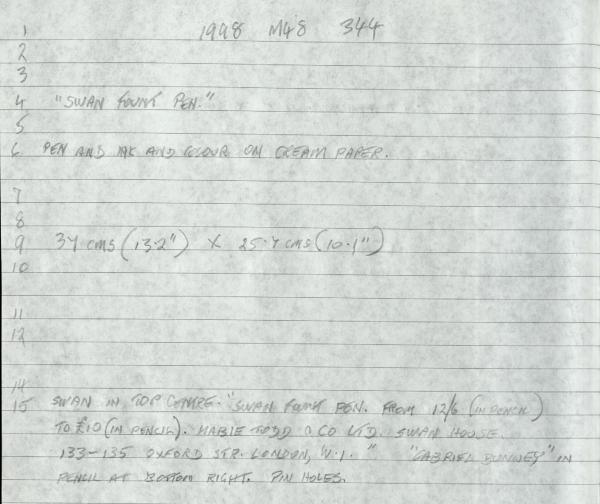 1 1998 M48 344
2
3
4 "SWAN FOUNT PEN."
5
6 PEN AND INK AND COLOUR ON CREAM PAPER.
7
8
9 34 cms (13.2") X 25.7 cms (10.1")
10
11
12
14
15 SWAN IN TOP CENTRE. "SWAN FOUNT PEN. FROM 12/6 (IN PENCIL)
TO £10 (IN PENCIL). MABIE TODD & CO LTD. SWAN HOUSE.
133-135 OXFORD STR. LONDON, W.1." "GABRIEL BUNNEY" IN
PENCIL AT BOTTOM RIGHT. PIN HOLES.